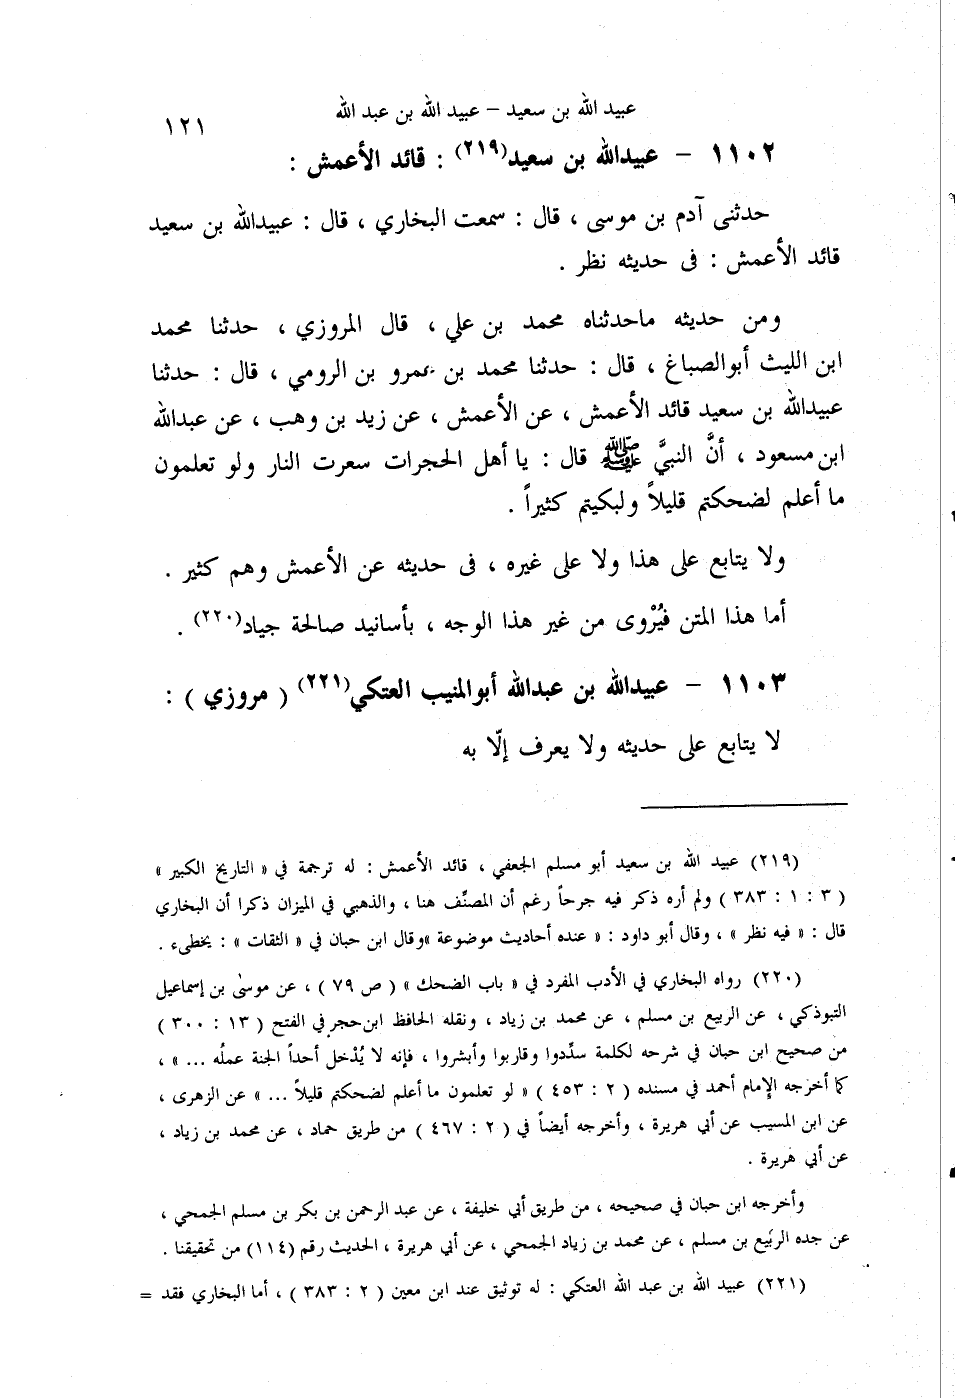 عبيد الله بن سعيد – عبيد الله بن عبد الله
١٢١
١١٠٢ – عبيدالله بن سعيد(٢١٩) : قائد الأعمش :
حدثنى آدم بن موسى ، قال : سمعت البخاري ، قال : عبيدالله بن سعيد
قائد الأعمش : فى حديثه نظر .
ومن حديثه ماحدثناه محمد بن علي ، قال المروزي ، حدثنا محمد
ابن الليث أبوالصباغ ، قال : حدثنا محمد بن عمرو بن الرومي ، قال : حدثنا
عبيدالله بن سعيد قائد الأعمش ، عن الأعمش ، عن زيد بن وهب ، عن عبدالله
ابن مسعود ، أنَّ النبيَّ ﷺ قال : يا أهل الحجرات سعرت النار ولو تعلمون
ما أعلم لضحكتم قليلاً ولبكيتم كثيراً .
ولا يتابع على هذا ولا على غيره ، فى حديثه عن الأعمش وهم كثير .
أما هذا المتن فيُرْوى من غير هذا الوجه ، بأسانيد صالحة جياد(٢٢٠) .
١١٠٣ – عبيدالله بن عبدالله أبوالمنيب العتكي(٢٢١) ( مروزي ) :
لا يتابع على حديثه ولا يعرف إلّا به
(٢١٩) عبيد الله بن سعيد أبو مسلم الجعفي ، قائد الأعمش : له ترجمة في « التاريخ الكبير »
( ٣ : ١ : ٣٨٣ ) ولم أره ذكر فيه جرحاً رغم أن المصنِّف هنا ، والذهبي في الميزان ذكرا أن البخاري
قال : « فيه نظر » ، وقال أبو داود : « عنده أحاديث موضوعة »وقال ابن حبان في « الثقات » : يخطىء .
(٢٢٠) رواه البخاري في الأدب المفرد في « باب الضحك » ( ص ٧٩ ) ، عن موسىٰ بن إسماعيل
التبوذكي ، عن الربيع بن مسلم ، عن محمد بن زياد ، ونقله الحافظ ابن حجر في الفتح ( ١٣ : ٣٠٠ )
من صحيح ابن حبان في شرحه لكلمة سدِّدوا وقاربوا وأبشروا ، فإنه لا يُدْخل أحداً الجنة عملُه ... » ،
كما أخرجه الإمام أحمد في مسنده ( ٢ : ٤٥٣ ) « لو تعلمون ما أعلم لضحكتم قليلاً ... » عن الزهرى ،
عن ابن المسيب عن أبي هريرة ، وأخرجه أيضاً في ( ٢ : ٤٦٧ ) من طريق حماد ، عن محمد بن زياد ،
عن أبي هريرة .
وأخرجه ابن حبان في صحيحه ، من طريق أبي خليفة ، عن عبد الرحمن بن بكر بن مسلم الجمحي ،
عن جده الربَيع بن مسلم ، عن محمد بن زياد الجمحي ، عن أبي هريرة ، الحديث رقم (١١٤) من تحقيقنا .
(٢٢١) عبيد الله بن عبد الله العتكي : له توثيق عند ابن معين ( ٢ : ٣٨٣ ) ، أما البخاري فقد =